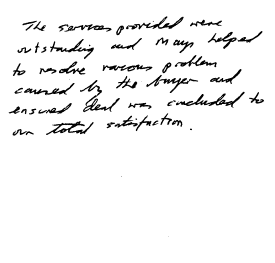 The services provided were
outstanding and Mays helped
to resolve various problem
caused by the buyer and
ensured deal was concluded to
our total satisfaction.